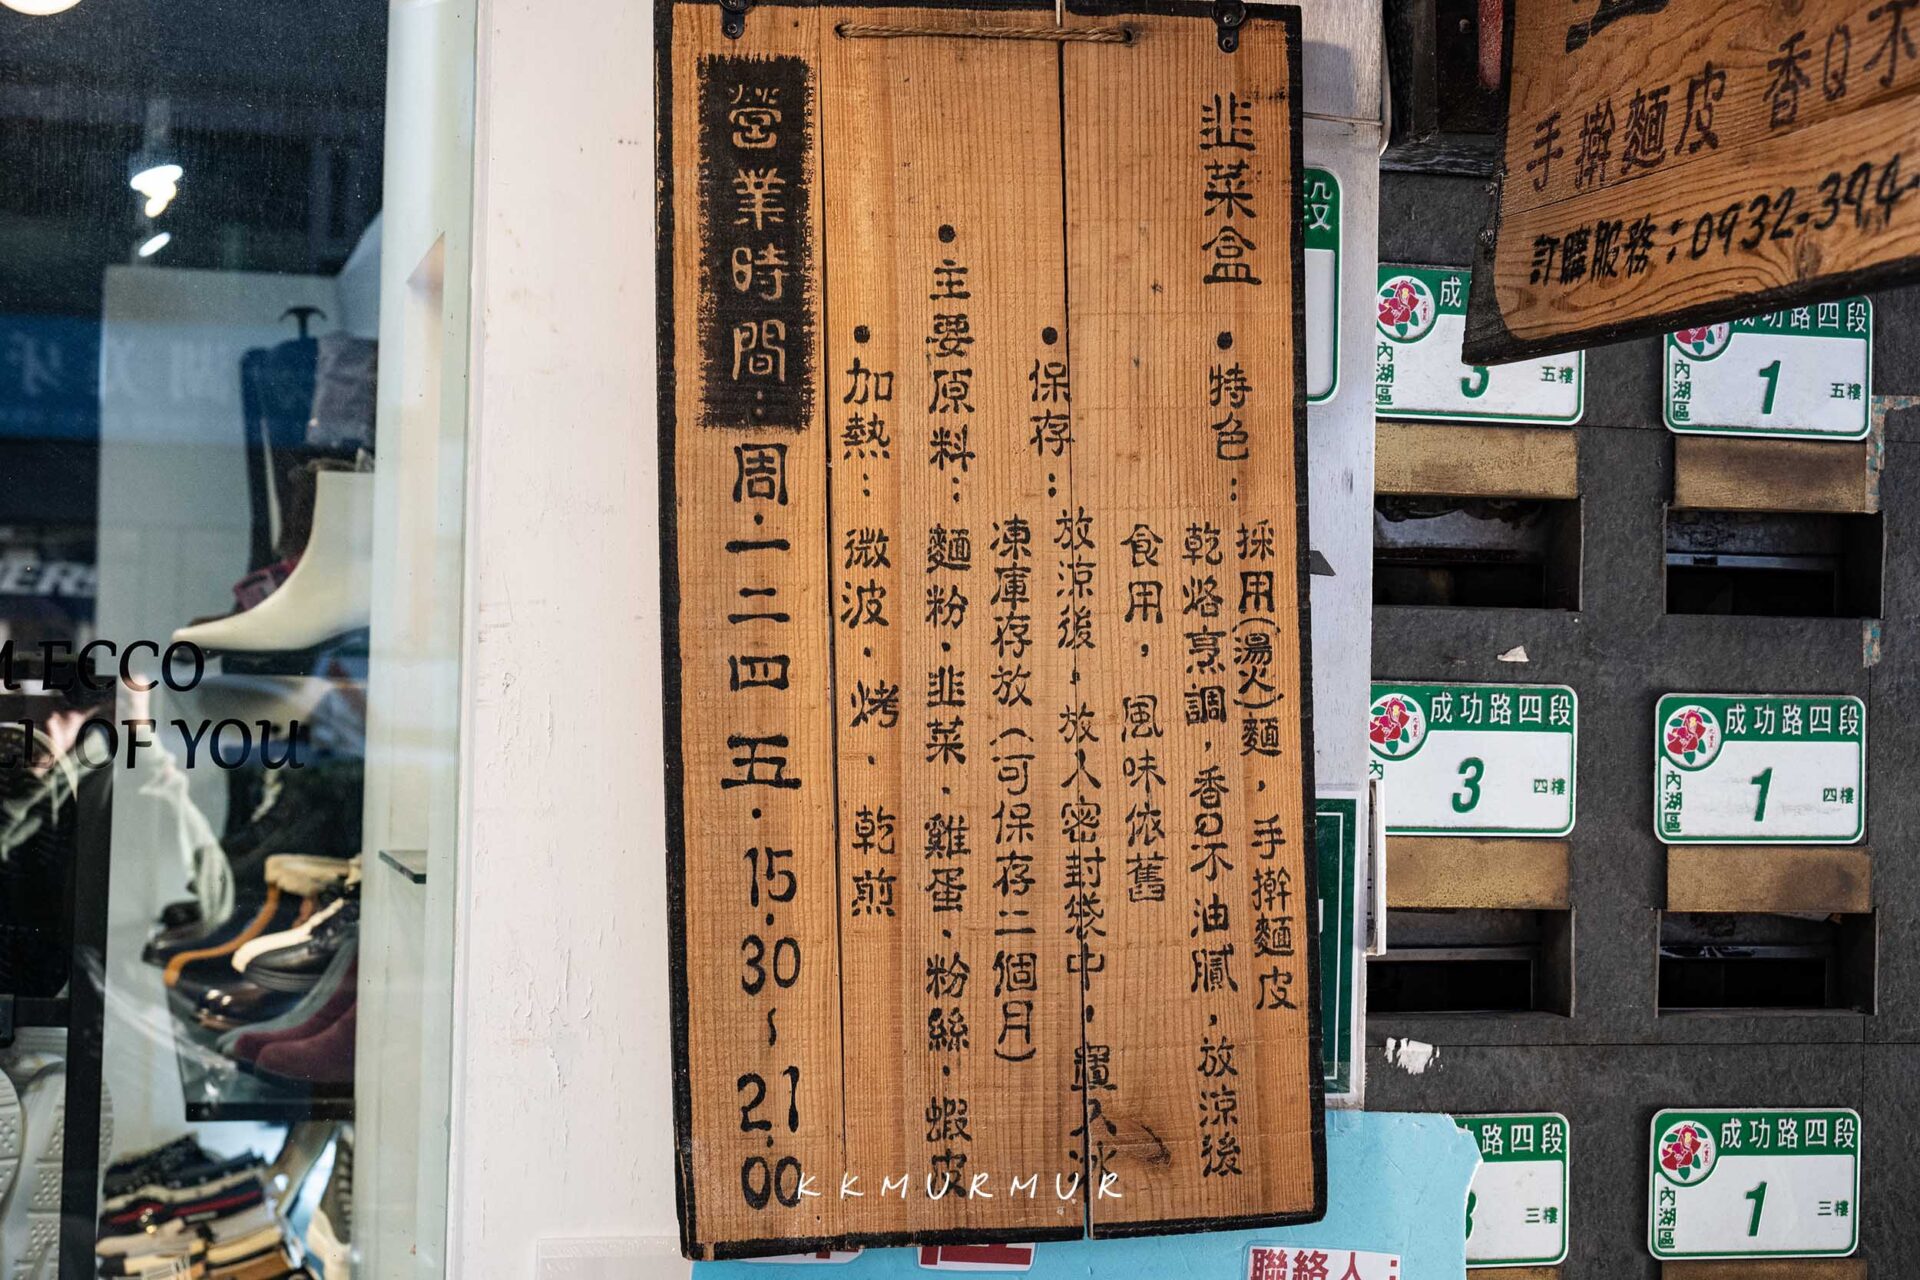 韭菜盒
•特色：採用(湯火)麵，手擀麵皮
乾烙烹調，香Q不油膩，放涼後
食用，風味依舊
•保存：放涼後，放入密封袋中，置入冰
凍庫存放（可保存二個月）
•主要原料：麵粉、韭菜、雞蛋、粉絲、蝦皮
•加熱：微波、烤、乾煎
營業時間：周·一二四五·15:30~21:00
KKMURMUR
手擀麵皮 香Q不
訂購服務：0932-394-
ECCO
OF YOU
段
成
內湖區
3
五樓
成功路四段
內湖區
1
五樓
成功路四段
內
3
四樓
成功路四段
內湖區
1
四樓
路四段
3
三樓
成功路四段
內湖區
1
三樓
聯絡人：